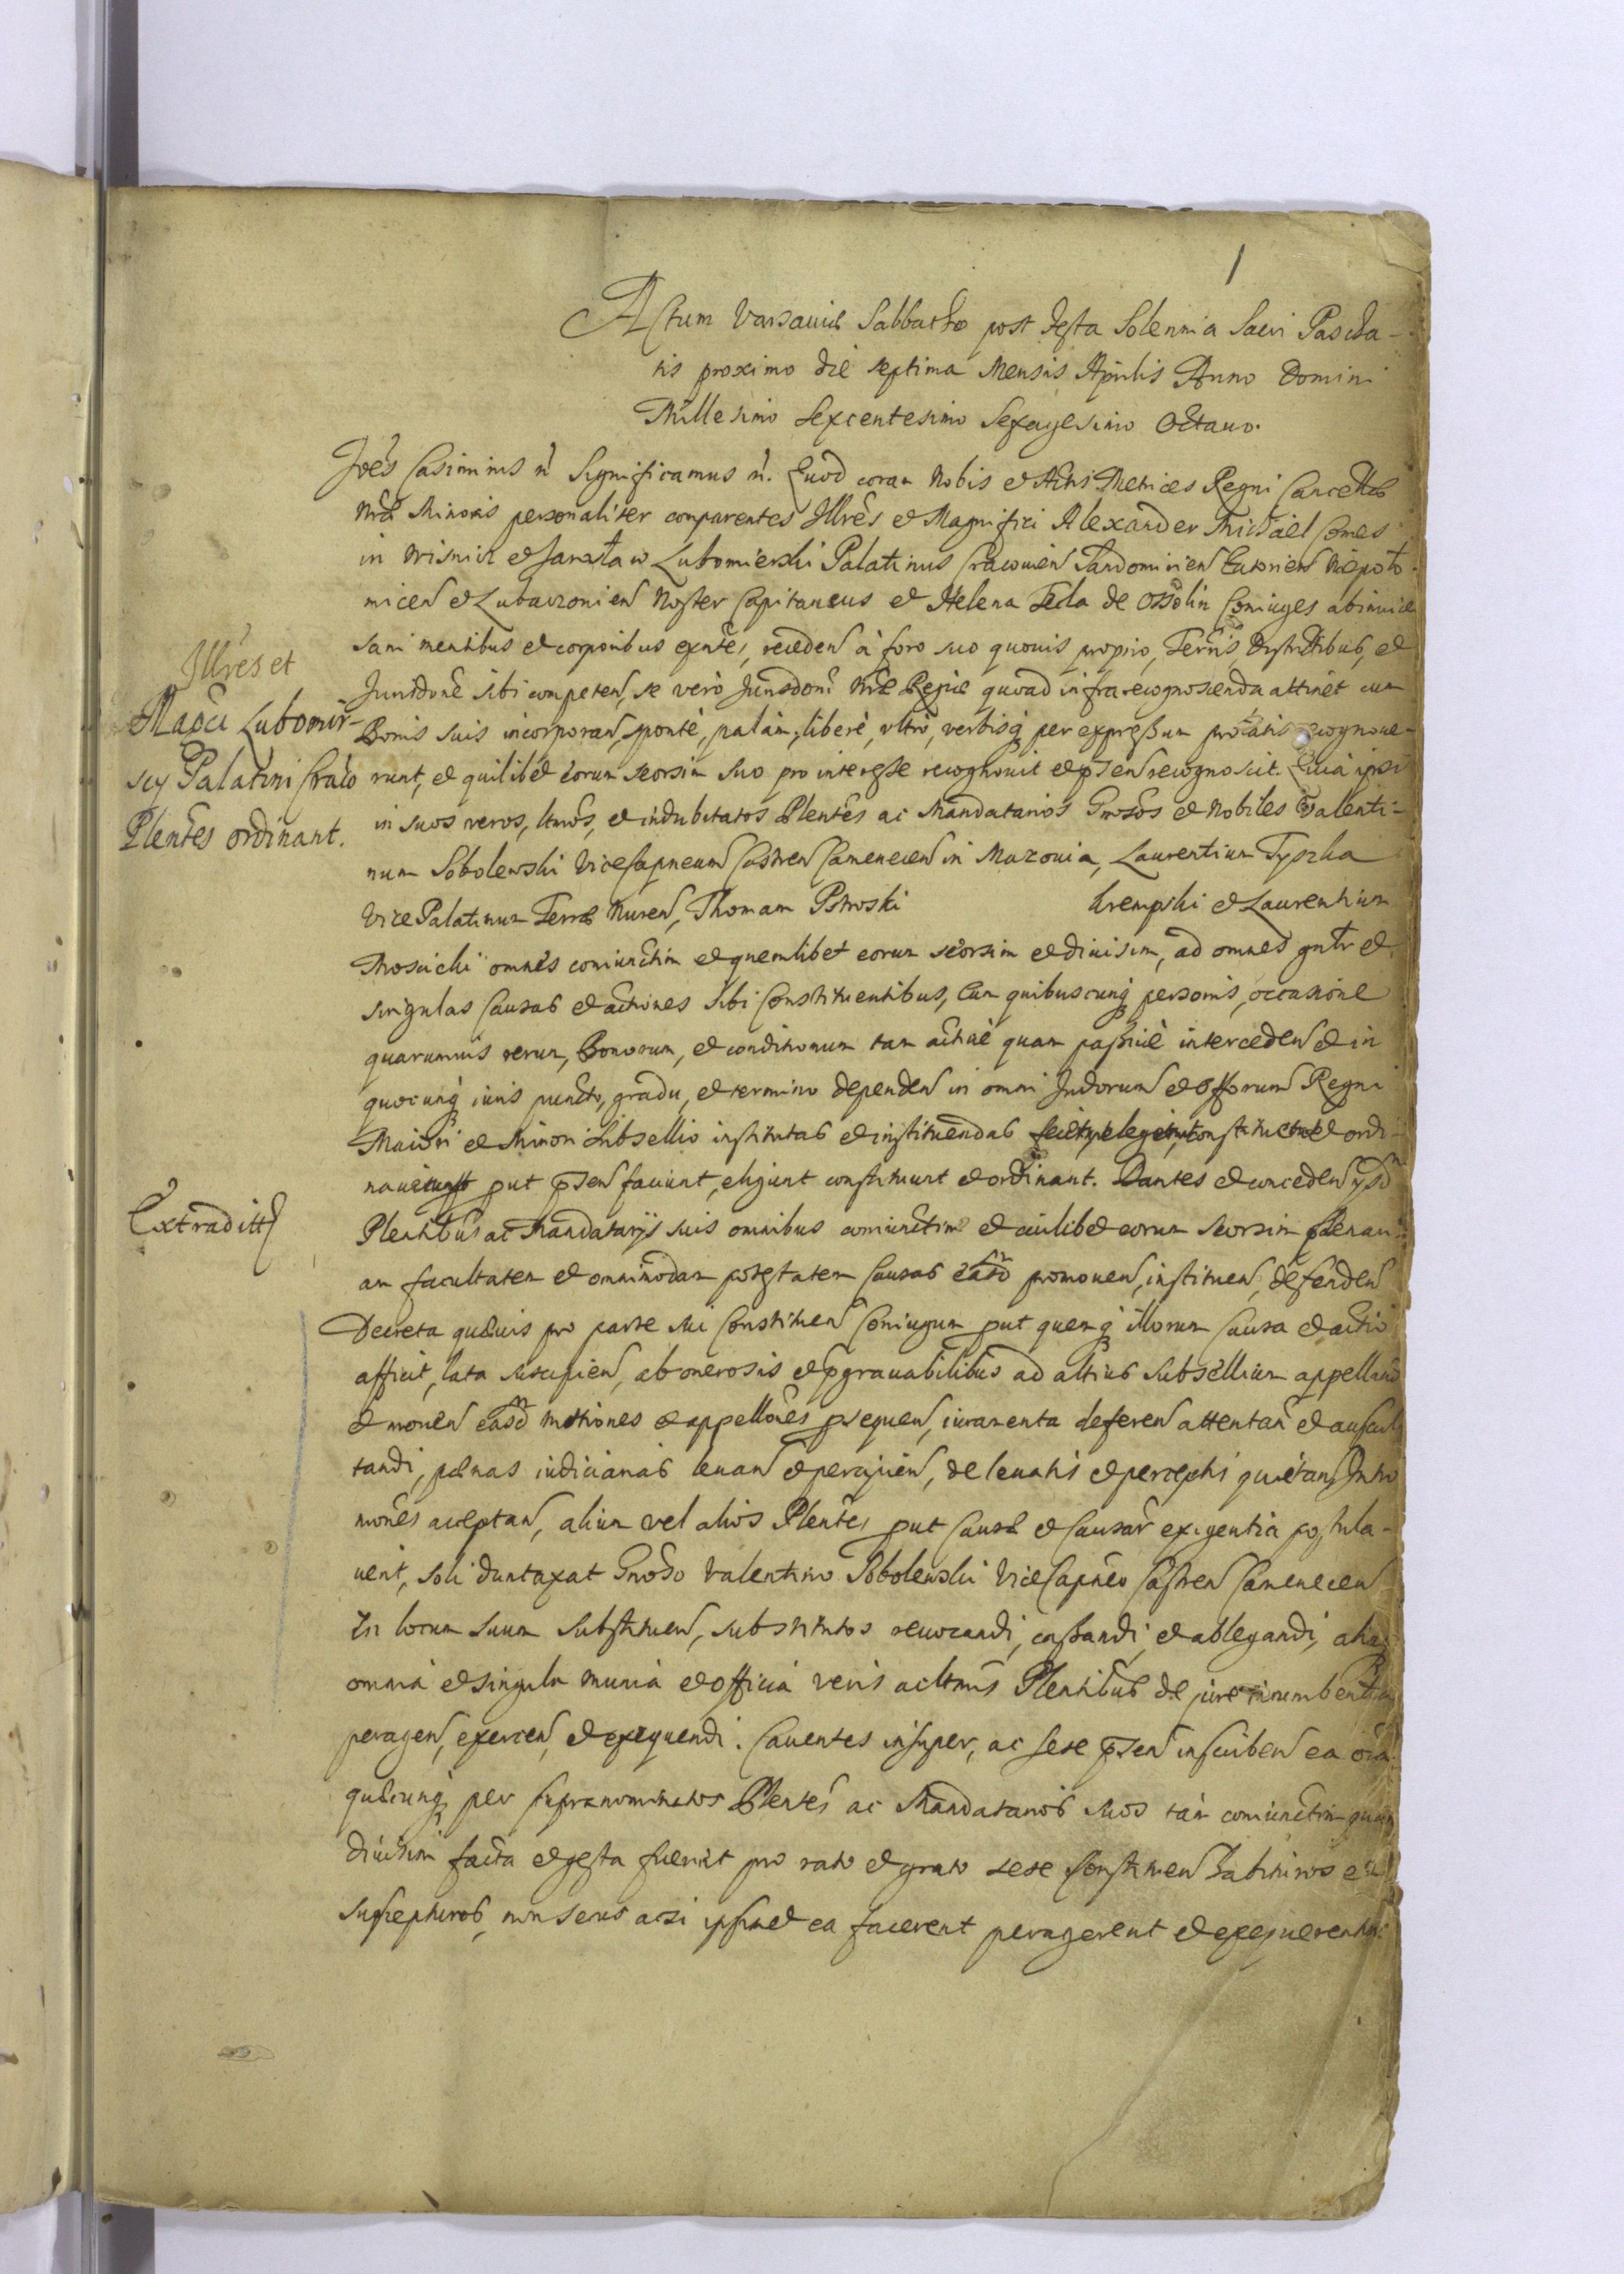 1
Actum Varsaviæ Sabbatho post Festa Solennia Sacri Pascha-
tis proximo die septima Mensis Aprilis Anno Domini
Millesimo Sexcentesimo Sexagesimo Octauo.
Joẽs Casimirus ñ Significamus ñ. Quod coram Nobis et Actis Metrices Regni Cancellæ
nr̃æ Minoris personaliter comparentes Jllrẽs et Magnifici Alexander Michael Comes
in Wisnicz et Jarosław Lubomierski Palatinus Cracouien Sandomirien Niepoło-
micen et Lubaczouien Noster Capitaneus et Helena Tecla de Ossolin Coniuges abinuice
sani mentibus et corporibus exñtes, receden à foro suo quouis proprio, Terris, Districtibus, et
Jllrẽs et
Magcõ Lubomir-
scy Palatini Craco
Plentẽs ordinant.
Jurisdonẽ sibi competen, se verò Jurisdonĩ nr̃æ Regiæ quoad infrarecognoscenda attinet cum
Bonis suis incorporan, sponte, palàm, liberè, vltrò, verbisq per expressum prolatis recognoue-
runt, et quilibet eorum seorsim suo pro interesse recognouit et pñsen recognoscit. Quia ipsi
in suos veros, ltmos, et indubitatos Plentẽs ac Mandatarios Gnosos et Nobiles Valenti-
num Sobolewski ViceCapneum Castren Camenecen in Mazouia, Laurentium Tyszka
Vice Palatinum Terræ Nuren, Thomam Pstroski krempski et Laurentium
Mościcki omnes coniunctim et quemlibet eorum seorsim et diuisim, ad omnes gñlr et
singulas Causas et actiones sibi Constituentibus, cum quibuscunq personis, occasione
quarumuis rerum, Bonorum, et conditionum tam actiuè quam passiuè interceden et in
quocunq iuris puncto, gradu, et termino dependen in omni Judiorum et Offorum Regni
Maiori et Minori Subsellio institutas et instituendas et ordi-
nauerunt put pñsen faciunt, eligunt constituunt et ordinant. Dantes et conceden ijsd
Extraditt
Plentibus ac Mandatarijs suis omnibus coniunctim et cuilibet eorum seorsim plenari-
am facultatem et omnimodam potestatem Causas easd promouen, instituen, defenden
Decreta quæuis pro parte sui Constituen Coniugum put quemq illorum Causa et actio
afficit, lata suscipien, ab onerosis et pgrauabilibus ad altius subsellium appelland
et mouen easd motiones et appellonẽs psequen, iuramenta deferen attentan et auscul
tandi, pœnas iudiciarias leuan et percipien, de leuatis et perceptis quietan, Intro
monẽs acceptan, alium vel alios Plentẽs put Causæ et Causarũ exigentia postula-
uerit, soli duntaxat Gnoso Valentino Sobolewski ViceCapneo Castren Camenecen
In locum suum substituen, substitutos reuocandi, cassandi, et ablegandi, aliaq
omnia et singula munia et officia veris ac ltmis Plentibus de jure incumbentia
peragen, exercen, et exequendi. Cauentes insuper, ac sese pñsen inscriben ea oĩa
quæcunq per supranominatos Plentẽs ac Mandatarios suos tàm coniunctim quam
diuisim facta et gesta fuerint pro rato et grato sese Constituen habituros et
suscepturos, non secus acsi ipsimet ea facerent peragerent et exequerentur.